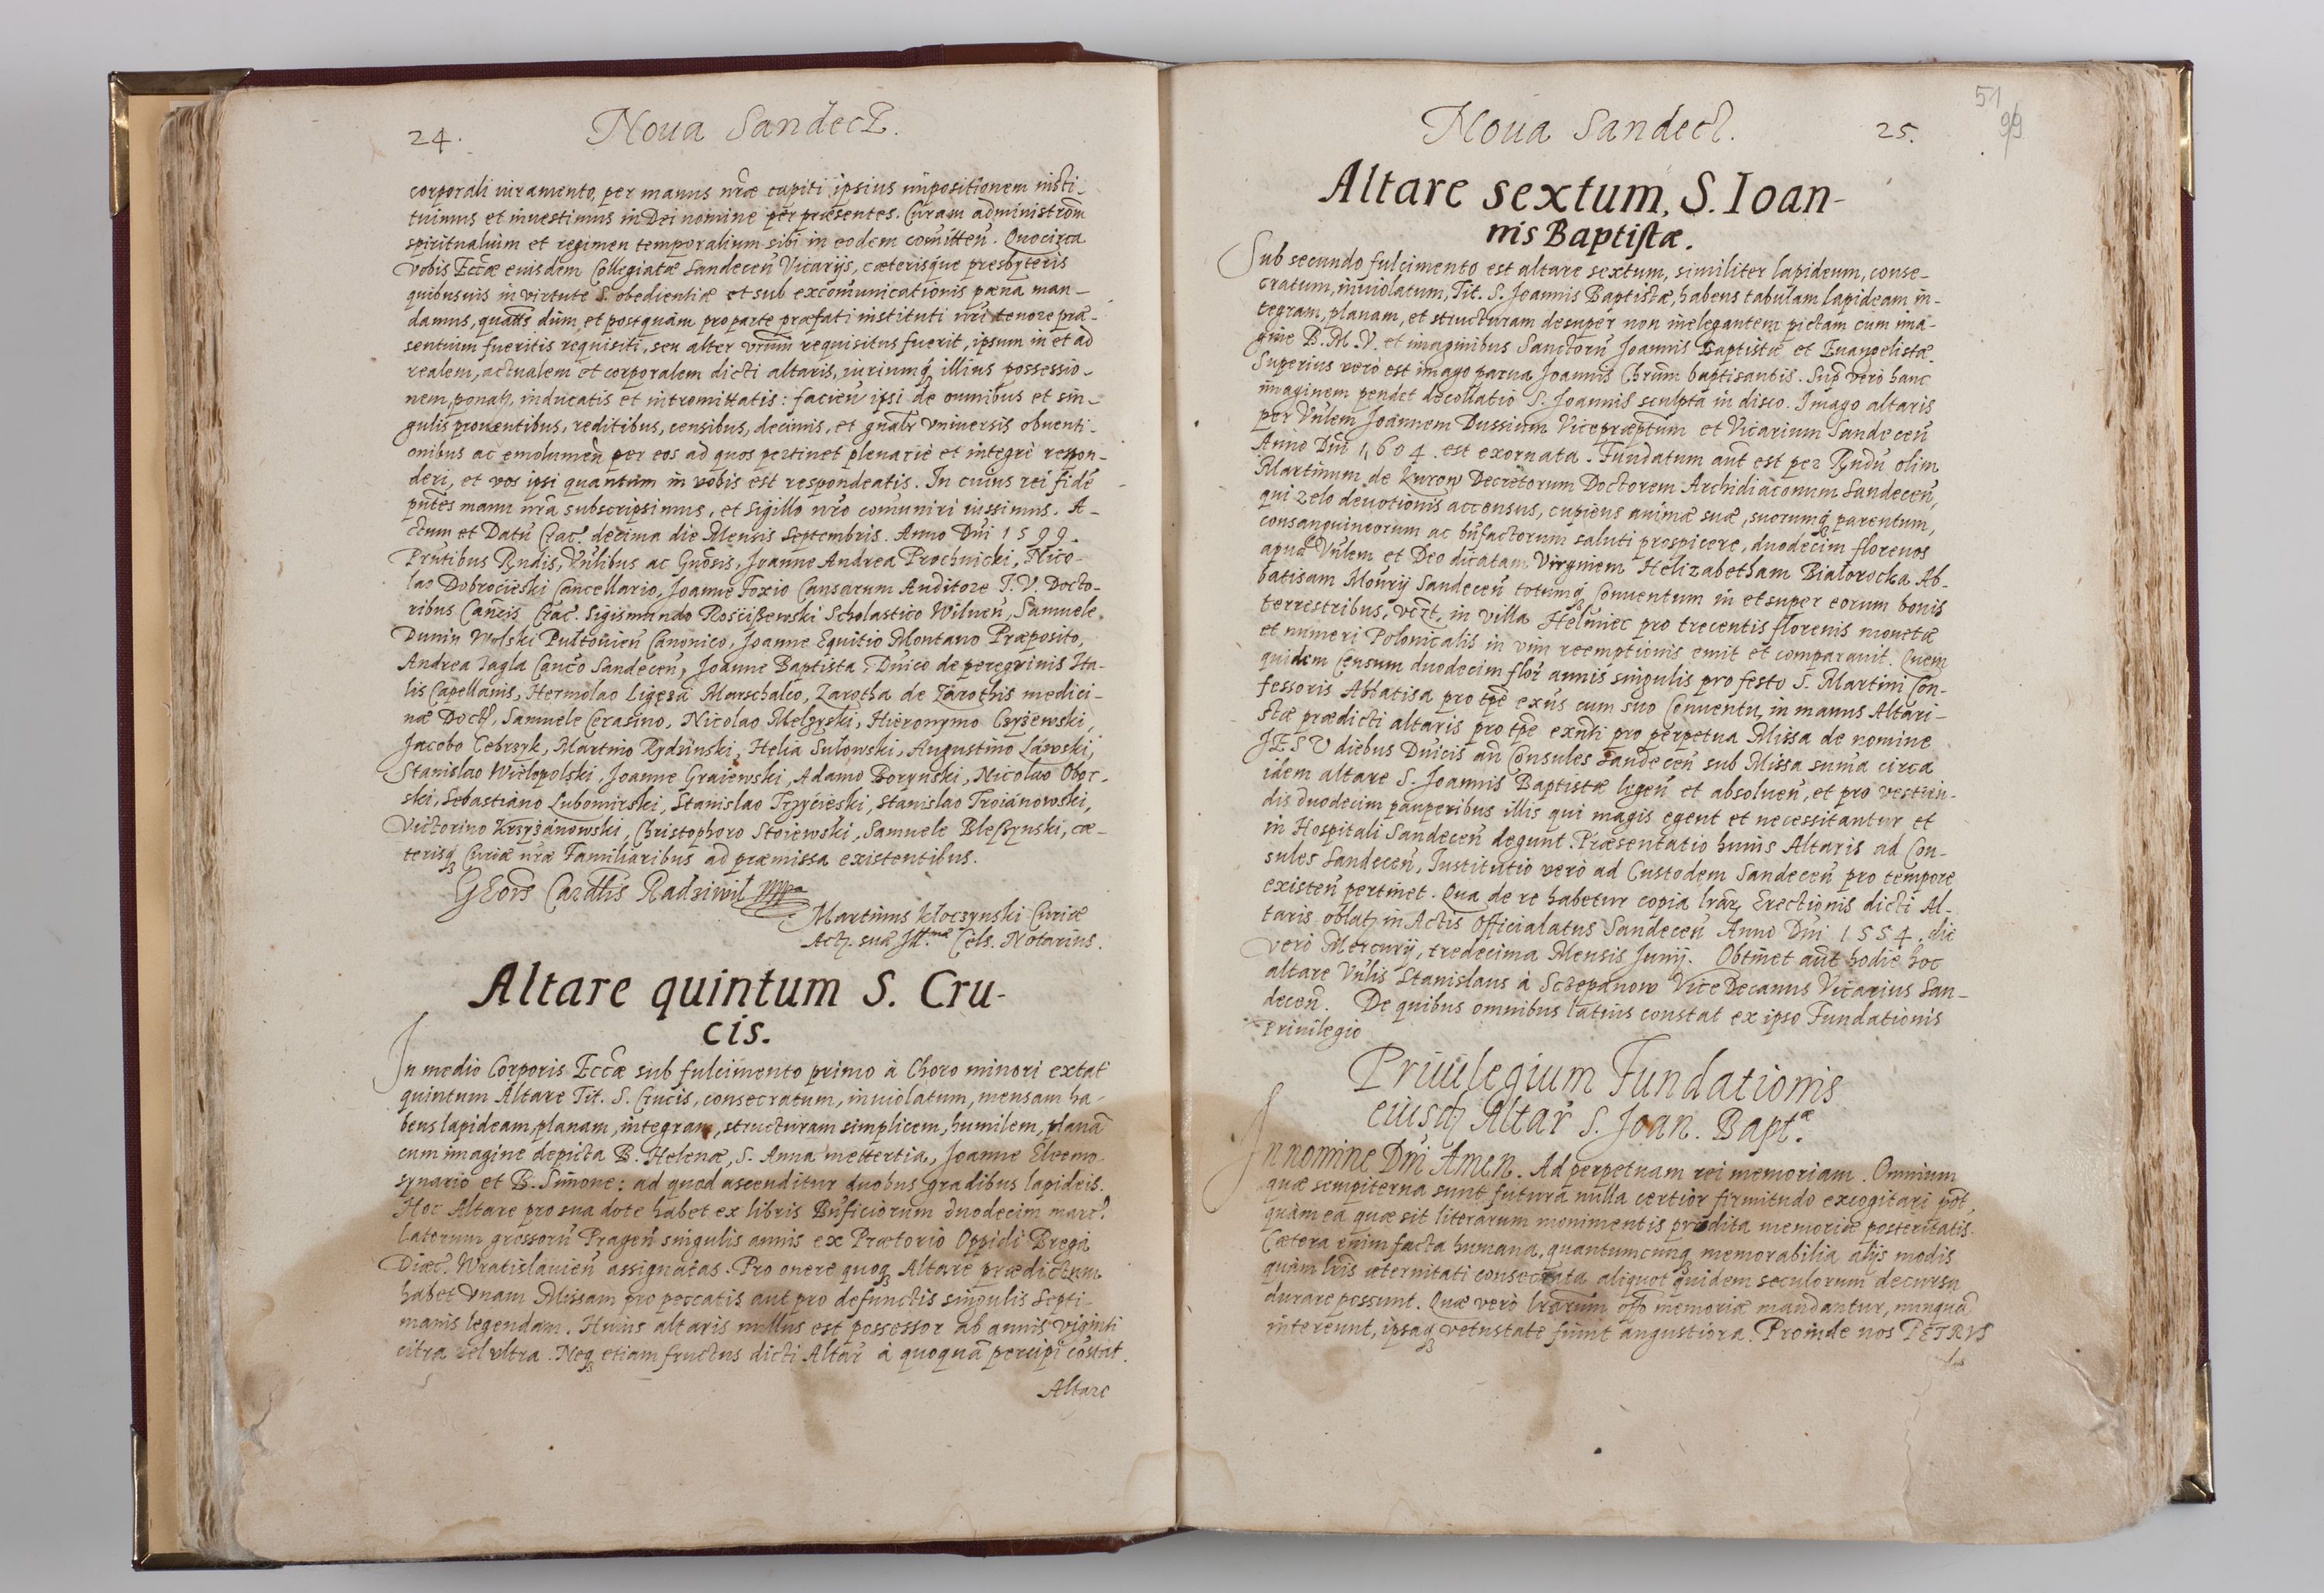 24.
Noua Sandecz.
corporali iuramento, per manus nr̃æ capiti ipsius impositionem insti-
tuimus et inuestimus in Dei nomine per præsentes. Curam administrõm
spiritualium et regimen temporalium sibi in eodem com̃itteñ. Quocirca
Vobis Eccæ eiusdem Collegiatæ Sandeceñ Vicarijs, cæterisque presbyteris
quibusuis in virtute S. obedientiæ et sub excom̃unicationis pæna man-
damus, quatt͠s dum et postquam pro parte præfati instituti nr̃i tenore præ-
sentium fueritis requisiti, seu alter vr̃um requisitus fuerit, ipsum in et ad
realem, actualem et corporalem dicti altaris, iuriumq illius possessio-
nem, ponatz, inducatis et intromittatis: facieñ ipsi de omnibus et sin-
gulis prouentibus, reditibus, censibus, decimis, et gñalr̃ Vniuersis obuenti-
onibus ac emolumeñ per eos ad quos pertinet plenariè et integrè respon-
deri, et vos ipsi quantum in vobis est respondeatis. In cuius rei fidẽ
pñtes manu nr̃a subscripsimus, et sigillo nr̃o com̃uniri iussimus. A-
ctum et Datũ Crac. decima die Mensis Septembris. Anno Dñi 1599.
Prñtibus Rñdis, Vñlibus ac Gñosis, Joanne Andrea Prochnicki, Nico-
lao Dobrocieski Cancellario, Joanne Foxio Causarum Auditore I. V. Docto-
ribus Cañcis Crac. Sigismundo Rościszewski Scholastico Wilneñ, Samuele
Dunin Wolski Pultouieñ Canonico, Joanne Equitio Montano Præposito,
Andrea Jagla Cañco Sandeceñ, Joanne Baptista, Dñico de peregrinis Ita-
lis Capellanis, Hermolao Ligęza Marschalco, Zarotha de Zarothis medici-
næ Doct., Samuele Cerasino, Nicolao Melzyski, Hieronymo Czyżewski,
Jacobo Cebrzyk, Martino Rydzinski, Helia Sułowski, Augustino Láwski,
Stanislao Wielopolski, Joanne Graiewski, Adamo Borynski, Nicolao Obor-
ski, Sebastiano Lubomirski, Stanislao Trzycieski, Stanislao Troiánowski,
Victorino Krzyżánowski, Christophoro Stoiewski, Samuele Bleszynski, cæ-
terisq Curiæ nr̃æ Familiaribus ad præmissa existentibus.
GEorg Cardlis Radziwil mpp
Martinus Kłoczynski Curiæ
Actz. suæ Ill.mæ Cels. Notarius.
Altare quintum S. Cru-
cis.
In medio Corporis Eccæ sub fulcimento primo à Choro minori extat
quintum Altare Tit. S. Crucis, consecratum, inuiolatum, mensam ha-
bens lapideam, planam, integram, structuram simplicem, humilem, planã
cum imagine depicta B. Helenæ, S. Anna mettertia, Joanne Eleemo-
synario et B. Simone: ad quod ascenditur duobus gradibus lapideis.
Hoc Altare pro sua dote habet ex libris Bñficiorum duodecim marc.
latorum grossorũ Prageñ singulis annis ex Prætorio Oppidi Bregá
Diæc. Wratislauieñ assignatas. Pro onere quoq Altare prædictum
habet Vnam Missam pro peccatis aut pro defunctis singulis Septi-
manis legendam. Huius altaris nullus est possessor ab annis viginti
citra vel vltra. Neq etiam fructus dicti Altar̃ à quoquã percipi cõstat.
Altare
51
99
Noua Sandecz.
25.
Altare sextum, S. Ioan-
nis Baptistæ.
Sub secundo fulcimento est altare sextum, similiter lapideum, conse-
cratum, inuiolatum, Tit. S. Joannis Baptistæ, habens tabulam lapideam in-
tegram, planam, et structuram desuper non inelegantem pictam cum ima-
gine B. M. V. et imaginibus Sanctorũ Joannis Baptistæ et Euangelistæ.
Superius verò est imago parua Joannis Chrũm baptisantis. Sup verò hanc
imaginem pendet decollatio S. Joannis sculpta in disco. Imago altaris
per Vñlem Joannem Dussium Vicepræptum et Vicarium Sandeceñ
Anno Dñi 1604. est exornata. Fundatum aũt est per Rñdũ olim
Martinum de Kurow Decretorum Doctorem Archidiaconum Sandeceñ,
qui zelo deuotionis accensus, cupiens animæ suæ, suorumq parentum,
consanguineorum ac bñfactorum saluti prospicere, duodecim florenos
apud Vñlem et Deo dicatam Virginem Helizabetham Białorocka Ab-
batisam Moñrij Sandeceñ totumq Conuentum in et super eorum bonis
terrestribus, vẽzt, in villa Hełmiec pro trecentis florenis monetæ
et numeri Polonicalis in vim reemptionis emit et comparauit. Quem
quidem Censum duodecim flor̃ annis singulis pro festo S. Martini Con-
fessoris Abbatisa pro tpẽ exñs cum suo Conuentu, in manus Altari-
stæ prædicti altaris pro tpẽ exñti pro perpetua Missa de nomine
JESV diebus Dñicis añ Consules Sandeceñ sub Missa sum̃a circa
idem altare S. Joannis Baptistæ legeñ et absolueñ, et pro vestien-
dis duodecim pauperibus illis qui magis egent et necessitantur et
in Hospitali Sandeceñ degunt. Præsentatio huius Altaris ad Con-
sules Sandeceñ, Institutio verò ad Custodem Sandeceñ pro tempore
existeñ pertinet. Qua de re habetur copia lrãrz Erectionis dicti Al-
taris oblatz in Actis Officialatus Sandeceñ Anno Dñi 1554. die
verò Mercurij, tredecima Mensis Junij. Obtinet aũt hodie hoc
altare Vñlis Stanislaus à Sczepánow ViceDecanus Vicarius San-
deceñ. De quibus omnibus latius constat ex ipso Fundationis
Priuilegio
Priuilegium Fundationis
eiusdz Altar̃ S. Joan. Bapt.æ
In nomine Dñi Amen. Ad perpetuam rei memoriam. Omnium
quæ sempiterna sunt futura nulla certior firmitudo excogitari põt,
quàm ea quæ sit literarum monimentis prædita memoriæ posteritatis.
Cætera enim facta humana, quantumcunq memorabilia alijs modis
quàm lrĩs æternitati consecrata aliquot quidem seculorum decursu
durare possunt. Quæ verò lrãrum offo memoriæ mandantur, nunquã
intereunt, ipsaq vetustate fiunt angustiora. Proinde nos PETRVS